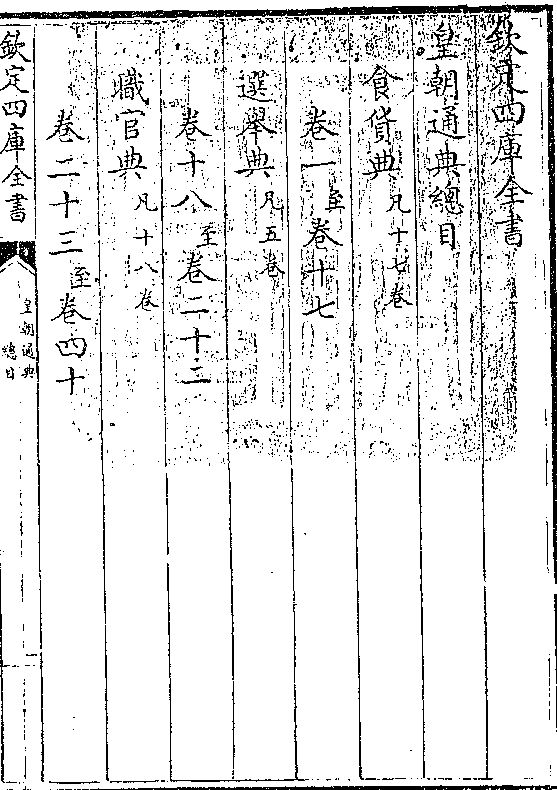 欽定四庫全書
皇朝通典總目
食貨典凡十七卷
卷一至卷十七
選舉典凡五卷
卷十八至卷二十二
職官典凡十八卷
卷二十三至卷四十
欽定四庫全書
皇朝通典
總目